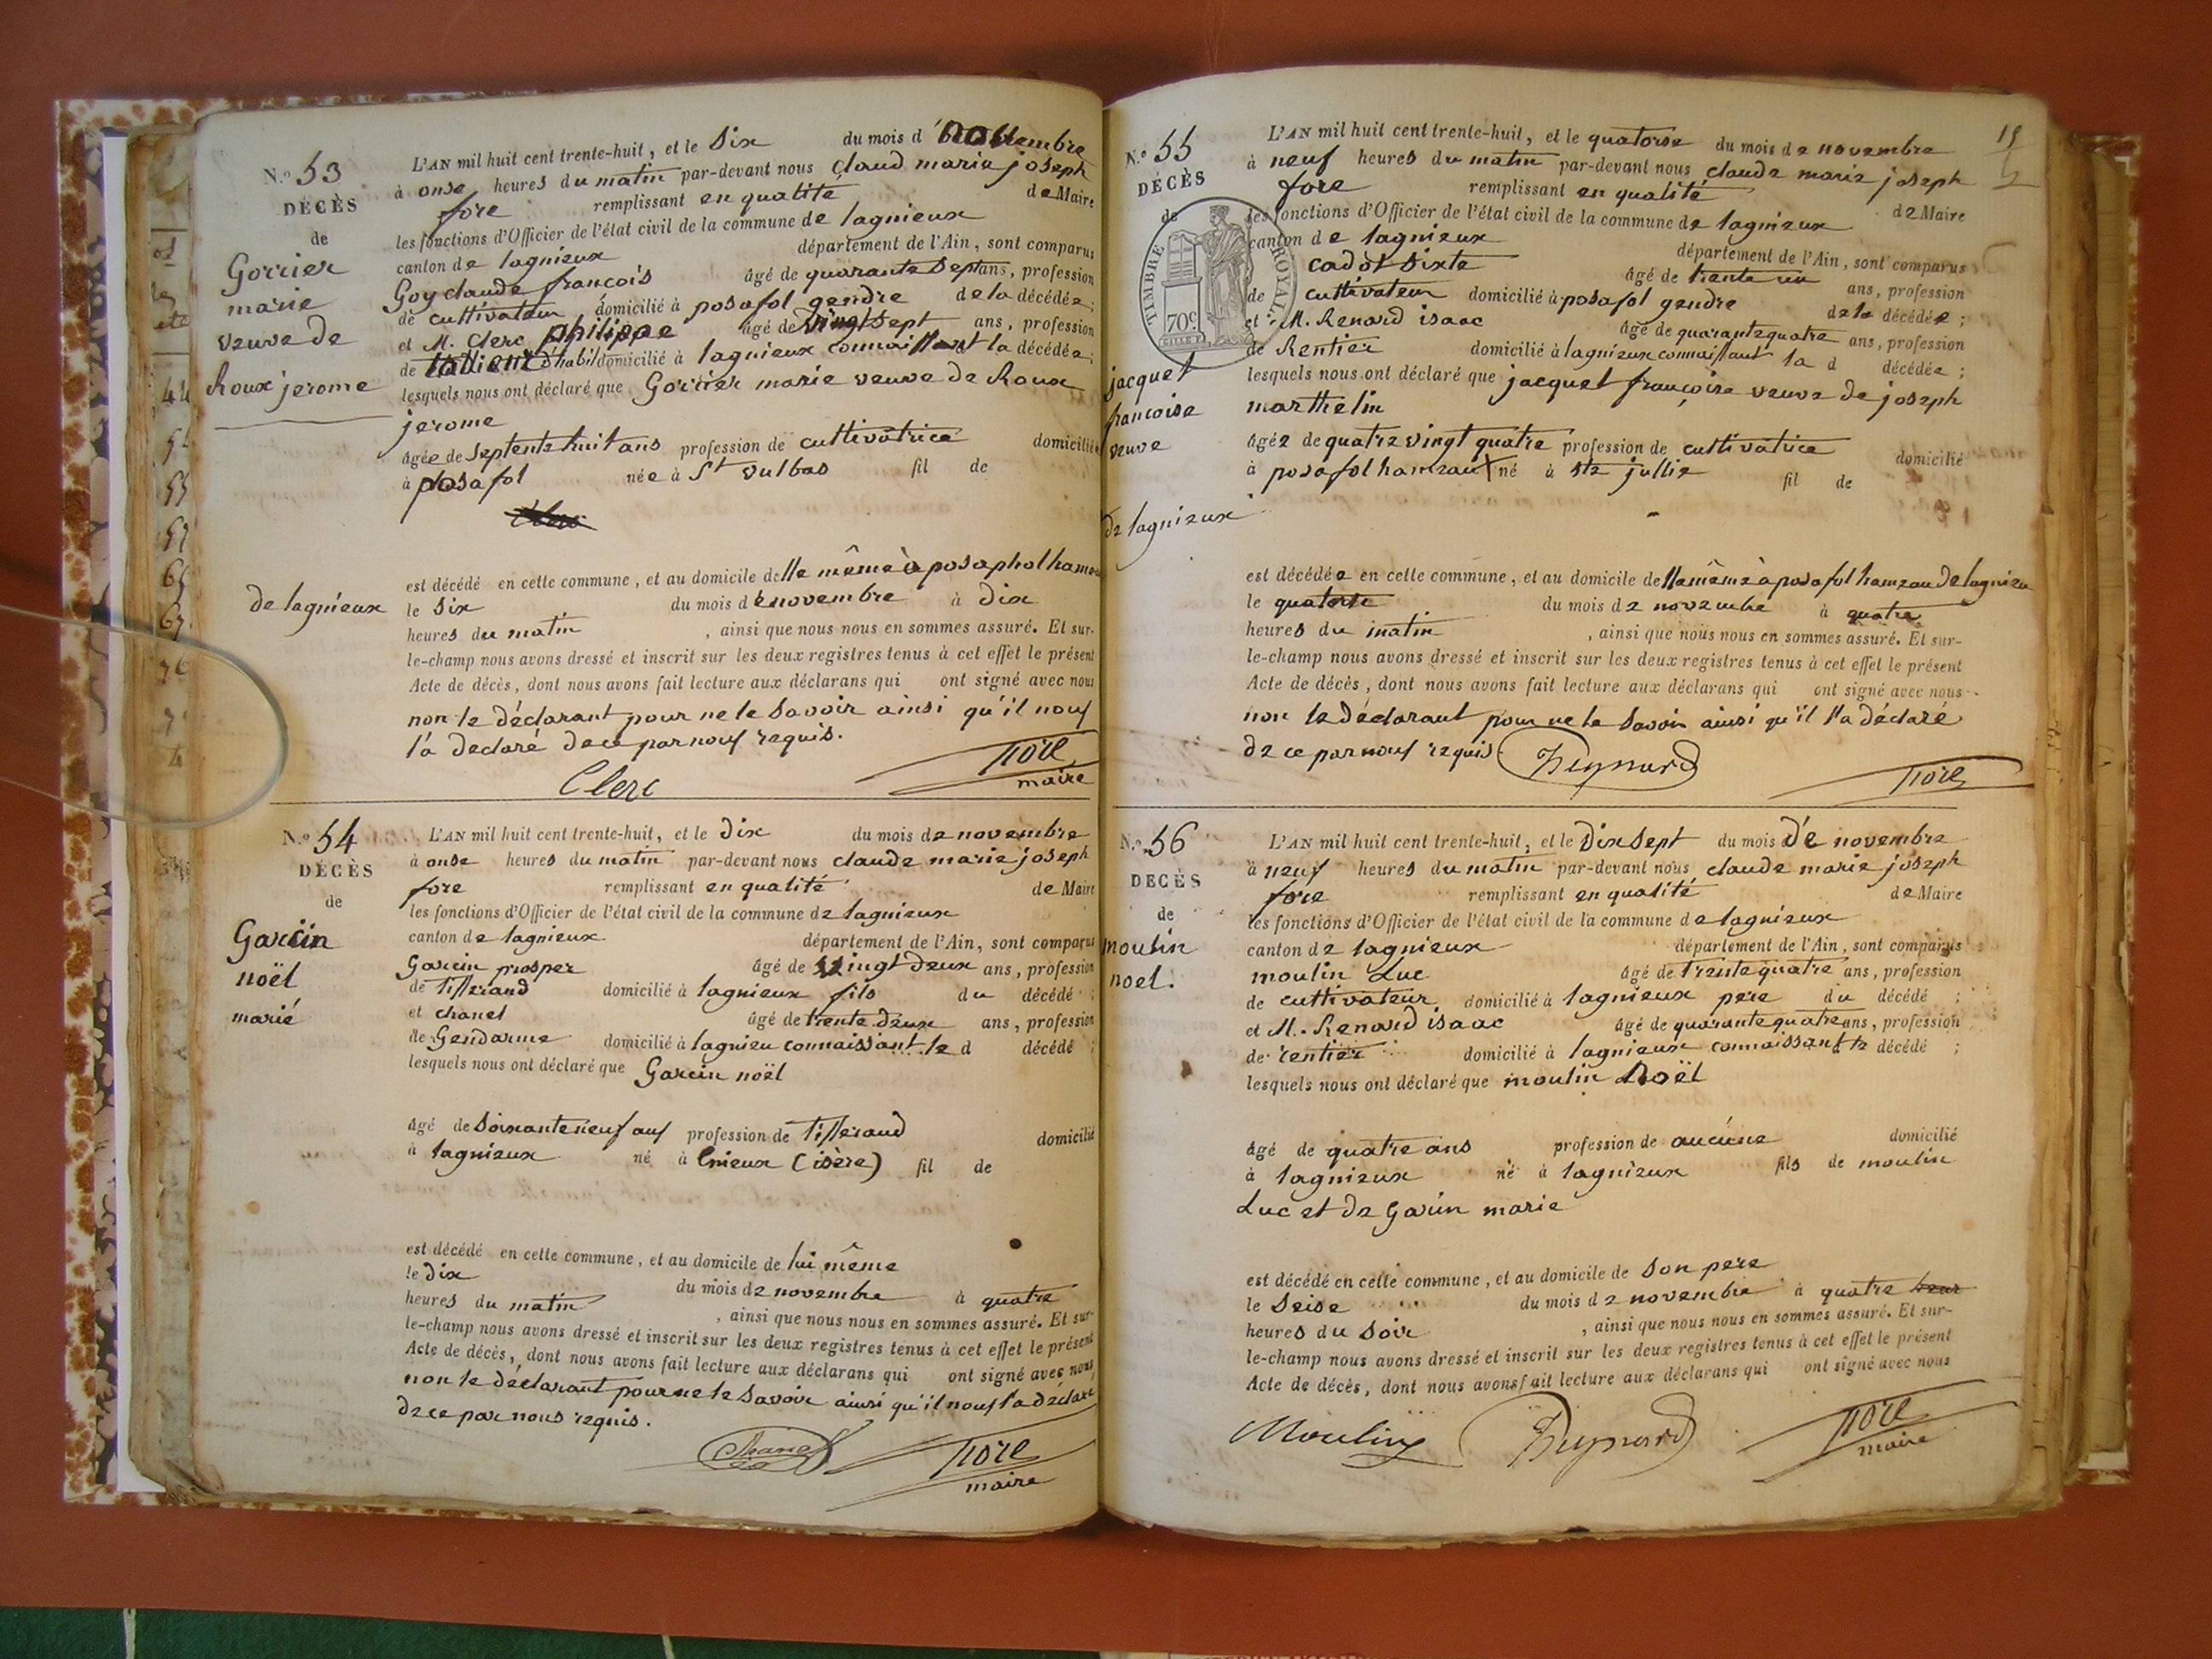 N.o 53
DÉCÈS
de
Gorrier
marie
veuve de
Roux jerome
de lagnieux
L'AN mil huit cent trente-huit, et le Six du mois d novembre
à onse heures du matin par-devant nous claud marie joseph
fore remplissant en qualité de Maire
les fonctions d'Officier de l'état civil de la commune de lagnieux
canton de lagnieux département de l'Ain, sont comparus
Goy claude francois âgé de quarante Sept ans, profession
de cultivateur domicilié à posafol gendre de la décédée;
et M. Clerc philippe âgé de vingt Sept ans, profession
de d'habi domicilié à lagnieux connaissant la décédée;
lesquels nous ont déclaré que Gorrier marie veuve de Roux
jerome
âgée de Septente huit ans profession de cultivatrice domiciliée
à posafol née à St vulbas fil de
est décédé en cette commune, et au domicile delle même à posaphol hameau
le Six du mois de novembre à dix
heures du matin, ainsi que nous nous en sommes assuré. Et sur-
le-champ nous avons dressé et inscrit sur les deux registres tenus à cet effet le présent
Acte de décès, dont nous avons fait lecture aux déclarans qui ont signé avec nous
non le déclarant pour ne le Savoir ainsi qu'il nous
l'a declaré de ce par nous requis.
Clerc fore
maire
N.o 54
DÉCÈS
de
Garcin
noël
marié
L'AN mil huit cent trente-huit, et le dix du mois de novembre
à onse heures du matin par-devant nous claude marie joseph
fore remplissant en qualité de Maire
les fonctions d'Officier de l'état civil de la commune de lagnieux
canton de lagnieux département de l'Ain, sont comparus
Garcin prosper âgé de vingt deux ans, profession
de tisserand domicilié à lagnieux fils du décédé;
et chanel âgé de trente deux ans, profession
de Gendarme domicilié à lagnieu connaissant le d décédé;
lesquels nous ont déclaré que Garcin noël
âgé de Soixante neuf ans profession de tisserand domicilié
à lagnieux né à (isère) fil de
est décédé en cette commune, et au domicile de lui même
le dix du mois de novembre à quatre
heures du matin, ainsi que nous nous en sommes assuré. Et sur-
le-champ nous avons dressé et inscrit sur les deux registres tenus à cet effet le présent
Acte de décès, dont nous avons fait lecture aux déclarans qui ont signé avec nous
non le déclarant pour ne le Savoir ainsi qu'il nous l'a déclaré
de ce par nous requis.
Chanel fore
maire
15
N.o 55
DÉCÈS
de
TIMBRE ROYAL
70c
jacquet
francoise
veuve
de lagnieux
L'AN mil huit cent trente-huit, et le quatorse du mois de novembre
à neuf heures du matin par-devant nous claude marie joseph
fore remplissant en qualité de Maire
les fonctions d'Officier de l'état civil de la commune de lagnieux
canton de lagnieux département de l'Ain, sont comparus
cadot Sixte âgé de trente un ans, profession
de cultivateur domicilié à posafol gendre de la décédée;
et M. Renard isaac âgé de quarante quatre ans, profession
de Rentier domicilié à lagnieux connaissant la d décédée;
lesquels nous ont déclaré que jacquet françoise veuve de joseph
marthelin
âgée de quatre vingt quatre profession de cultivatrice domicilié
à posafol hameau né à ste jullie fil de
est décédée en cette commune, et au domicile delle même à posafol hameau de lagnieu
le quatorse du mois de novembre à quatre
heures du matin, ainsi que nous nous en sommes assuré. Et sur-
le-champ nous avons dressé et inscrit sur les deux registres tenus à cet effet le présent
Acte de décès, dont nous avons fait lecture aux déclarans qui ont signé avec nous
non le déclarant pour ne le Savoir ainsi qu'il l'a déclaré
de ce par nous requis Reynard
fore
N.o 56
DÉCÈS
de
moulin
noel.
L'AN mil huit cent trente-huit, et le Dix Sept du mois de novembre
à neuf heures du matin par-devant nous claude marie joseph
fore remplissant en qualité de Maire
les fonctions d'Officier de l'état civil de la commune de lagnieux
canton de lagnieux département de l'Ain, sont comparus
moulin Luc âgé de trente quatre ans, profession
de cultivateur domicilié à lagnieux pere du décédé;
et M. Renard isaac âgé de quarante quatre ans, profession
de rentier domicilié à lagnieux connaissant le décédé;
lesquels nous ont déclaré que moulin Noël
âgé de quatre ans profession de aucune domicilié
à lagnieux né à lagnieux fils de moulin
Luc et de Garin marie
est décédé en cette commune, et au domicile de Son pere
le Seise du mois de novembre à quatre heur
heures du Soir, ainsi que nous nous en sommes assuré. Et sur-
le-champ nous avons dressé et inscrit sur les deux registres tenus à cet effet le présent
Acte de décès, dont nous avons fait lecture aux déclarans qui ont signé avec nous
Moulin Reynard fore
maire